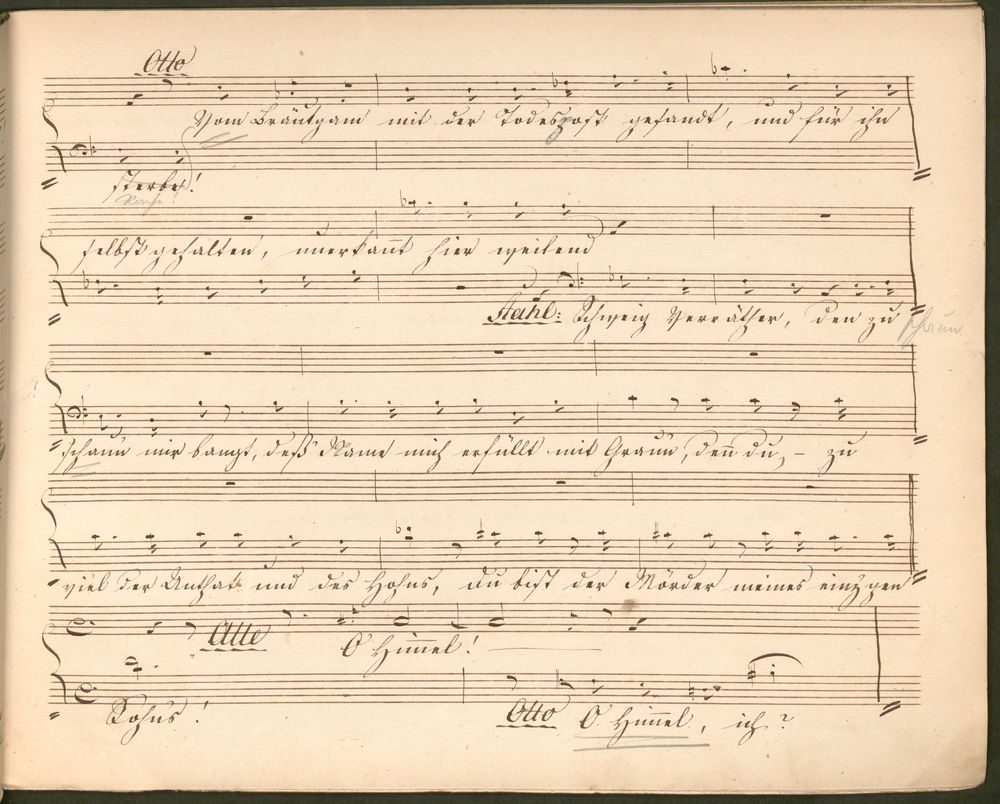 Otto
Vom Bräutgam mit der Todespost gesandt, und für ihn
sterbe!
Rache!
selbst gehalten, unerkannt hier weilend
Stahl: Schweig Verräther, den zu
schaun
schaun mir bangt, deß Name mich erfüllt mit Graun, denn du, – zu
viel der Unthat und des Hohns, du bist der Mörder meines einzgen
Alle O Himmel!
Sohns!
Otto O Himmel, ich?